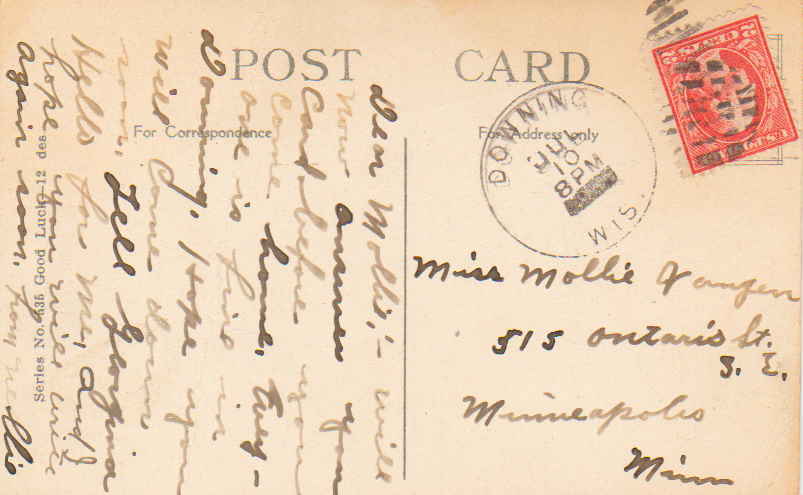 POST CARD
For Correspondence
For Address only
Dear Mollie; - will
now answer your
Card before you
come home. Every-
one is fine in
Downing. I hope you
will come down
soon. Tell Georgina
Hello for me, and I
hope you will write
again soon. from Nellie
Series No. 535 Good Luck-12 des.
DOWNING
JUL
10
8PM
WIS.
2 CENTS 2
Miss Mollie
515 Ontario St.
S. E.
Minneapolis
Minn